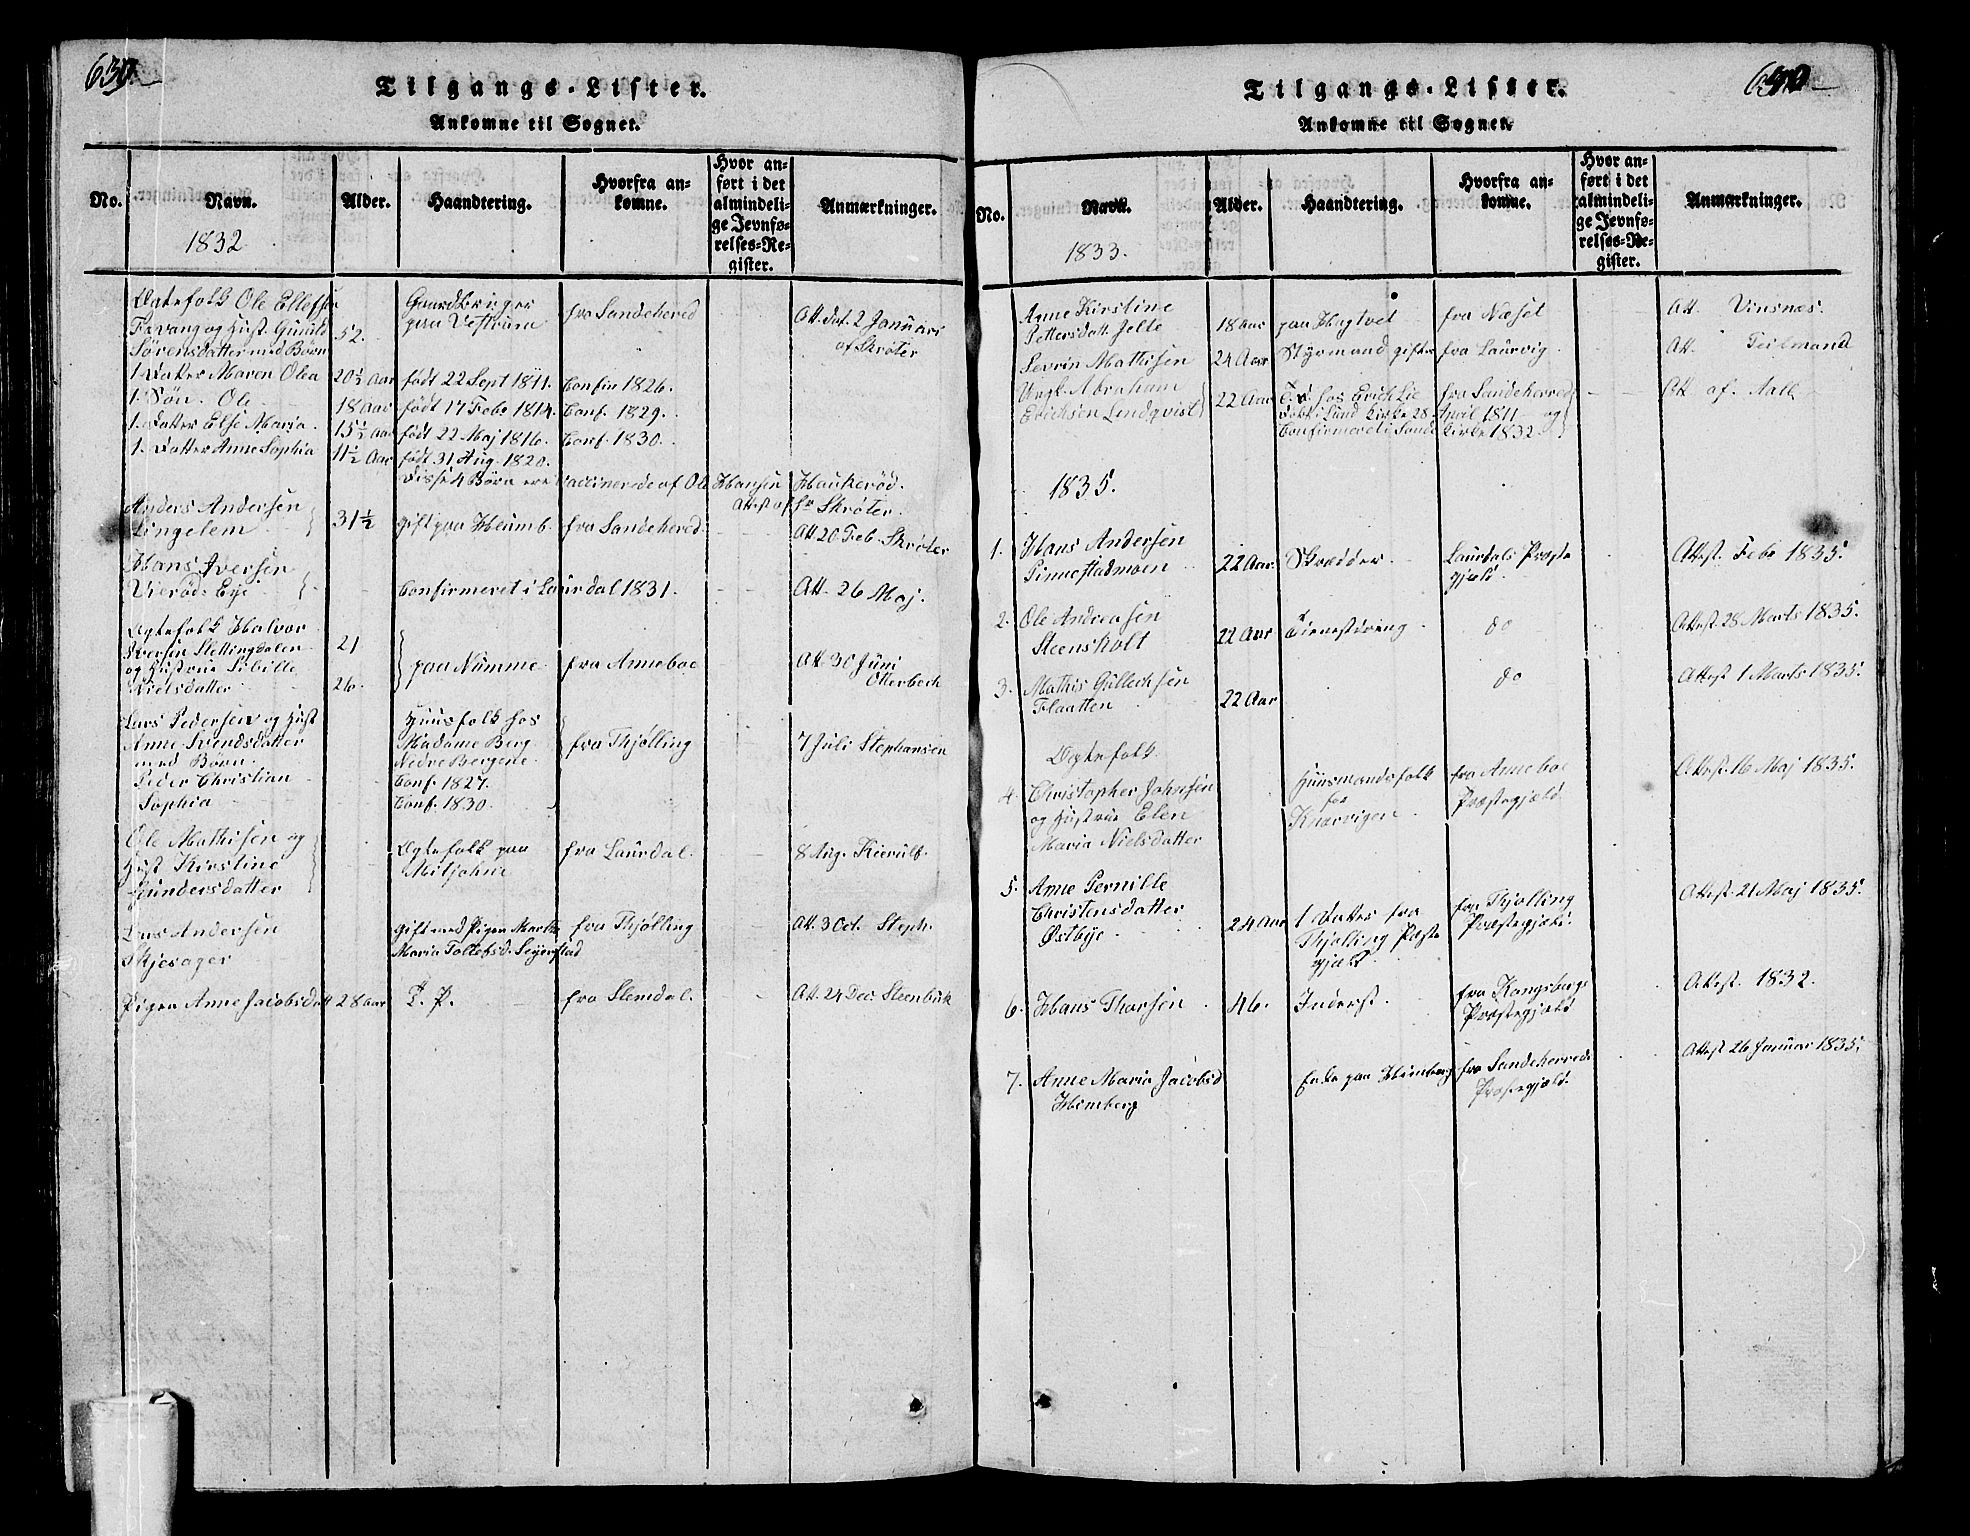 639
Tilgangs-Lister.
Ankomne til Sognet.
No.
Navn.
1832
Alder.
Haandtering.
Hvorfra an-
komne.
Hvor an-
ført i det
almindeli-
ge Jevnfø-
relses-Re-
gister.
Anmærkninger.
Ægtefolk Ole Ellefsen
og Hust. Gunild 52.
Sørensdatter med Børn
Gaardbruger
paa Vestrum
fra Sandeherred
Att. dat. 2 Januari
af Skrøter
1. Datter Maren Olea 20½ Aar født 22 Sept 1811. Confir 1826.
1. Søn. Ole 18 Aar født 17 Febr 1814. Conf. 1829.
1. Datter Else Maria 15½ Aar født 22 Maj 1816. Conf. 1830.
1. Datter Anne Sophia 11½ Aar født 31 Aug. 1820.
Disse 4 Børn ere vaccinerede af Ole Hansen Haukerød.
Attest af Hr Skrøter.
Anders Andersen
Lingelem
31½
gift paa Heumb. fra Sandeherred
Att 20 Feb. Skrøter
Hans Iversen
Vierød Eje
Confirmeret i Laurdal 1831.
Att. 26 Maj.
Ægtefolk Halvor
Iversen Slettingdalen 21
og Hustrue Sibille
Nielsdatter 26.
paa Numme
fra Anneboe
Att. 30 Juni
Otterbech
Lars Pedersen og Hust
Anne Svendsdatter
med Børn.
Peder Christian
Sophia
Huusfolk hos
Madame Berg
Nedre Bergene
Conf. 1827.
Conf. 1830.
fra Thjølling
7 Juli Stephansen
Ole Mathisen og
Hust Kirstine
Gundersdatter
Ægtefolk paa
Miljohne
fra Laurdal.
8 Aug. Kierulf.
Lars Andersen
Skjesager
gift med Pigen Marthe
Maria Tollefsd. Seyerstad
fra Thjølling
Att. 3 Oct. Steph.
Pigen Anne Jacobsdatt 28 aar T. P. fra Slemdal. Att. 24 Dec. Steenbuk
640
Tilgangs-Lister.
Ankomne til Sognet.
No.
Navn.
1833.
Alder.
Haandtering.
Hvorfra an-
komne.
Hvor an-
ført i det
almindeli-
ge Jevnfø-
relses-Re-
gister.
Anmærkninger.
Anne Kirstine
Pettersdatt. Jelle 18 aar paa Hagtvet fra Næset Att. Vinsnes.
Sevrin Mathisen 24 Aar Styrmand gifter fra Laurvig. Att. Teilmand
Ungk. Abraham
Erichsen Lindqvist 22 Aar
T. hos Erich Lie fra Sandeherred Att. af. Aall
Døbt i Sund Kirke 28. April 1811 og
Confirmeret i Sande Kirke 1832.
1835.
1. Hans Andersen
Pinnestadmoen 22 Aar Skrædder. Laurdals Præste
gjæld.
Attest. Febr 1835.
2. Ole Andreasen
Steensholt 22 Aar Tienestdreng do Attest 28 Marts 1835.
3. Mathis Gullechsen
Flaatten 22 Aar do Attest 1 Marts 1835.
Ægtefolk.
4. Christopher Johnsen
og Hustrue Elen
Maria Nielsdatter
Huusmandsfolk
fra
Knarvigen.
fra Anneboe
Præstegjæld.
Attest. 16 Maj 1835.
5. Anne Pernille
Christensdatter
Østbye 24 Aar
1 Datter fra
Thjølling Præste
gjæld.
fra Thjølling
Præstegjæld.
Attest. 21 Maj 1835.
6. Hans Thorsen 46. Inderst. fra Kongsbergs
Præstegjæld
Attest. 1832.
7. Anne Maria Jacobsd
Himberg
Enke paa Himberg fra Sandeherreds
Præstegjæld.
Attest 26 Januar 1835.